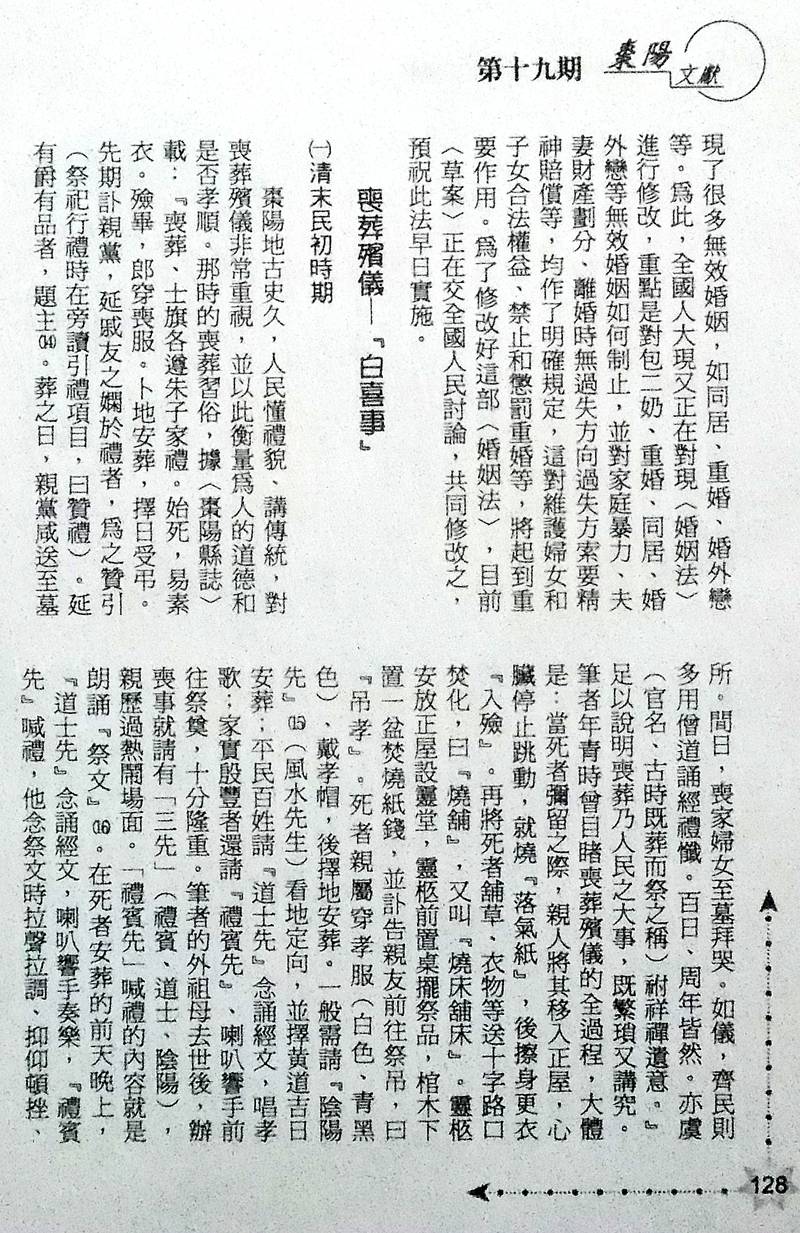 第十九期
棗陽
文獻
現了很多無效婚姻，如同居、重婚、婚外戀
等。爲此，全國人大現又正在對現〈婚姻法〉
進行修改，重點是對包二奶、重婚、同居、婚
外戀等無效婚姻如何制止，並對家庭暴力、夫
妻財產劃分、離婚時無過失方向過失方索要精
神賠償等，均作了明確規定，這對維護婦女和
子女合法權益、禁止和懲罰重婚等，將起到重
要作用。爲了修改好這部〈婚姻法〉，目前
〈草案〉正在交全國人民討論，共同修改之，
預祝此法早日實施。
喪葬殯儀—『白喜事』
㈠清末民初時期
棗陽地古史久，人民懂禮貌、講傳統，對
喪葬殯儀非常重視，並以此衡量爲人的道德和
是否孝順。那時的喪葬習俗，據〈棗陽縣誌〉
載：『喪葬、士旗各遵朱子家禮。始死，易素
衣。殮畢，郎穿喪服。卜地安葬，擇日受弔。
先期訃親黨，延戚友之嫻於禮者，爲之贊引
（祭祀行禮時在旁讀引禮項目，曰贊禮）。延
有爵有品者，題主⒁。葬之日，親黨咸送至墓
所。間日，喪家婦女至墓拜哭。如儀，齊民則
多用僧道誦經禮懺。百日、周年皆然。亦虞
（官名、古時既葬而祭之稱）祔祥禫遺意。』
足以說明喪葬乃人民之大事，既繁瑣又講究。
筆者年青時曾目睹喪葬殯儀的全過程，大體
是：當死者彌留之際，親人將其移入正屋，心
臟停止跳動，就燒『落氣紙』，後擦身更衣
『入殮』。再將死者舖草、衣物等送十字路口
焚化，曰『燒舖』，又叫『燒床舖床』。靈柩
安放正屋設靈堂，靈柩前置桌擺祭品，棺木下
置一盆焚燒紙錢，並訃告親友前往祭吊，曰
『吊孝』。死者親屬穿孝服（白色、青黑
色）、戴孝帽，後擇地安葬。一般需請『陰陽
先』⒂（風水先生）看地定向，並擇黃道吉日
安葬；平民百姓請『道士先』念誦經文，唱孝
歌；家實殷豐者還請『禮賓先』、喇叭響手前
往祭奠，十分隆重。筆者的外祖母去世後，辦
喪事就請有「三先」（禮賓、道士、陰陽），
親歷過熱鬧場面。「禮賓先」喊禮的內容就是
朗誦『祭文』⒃。在死者安葬的前天晚上，
『道士先』念誦經文，喇叭響手奏樂，『禮賓
先』喊禮，他念祭文時拉聲拉調、抑仰頓挫、
128